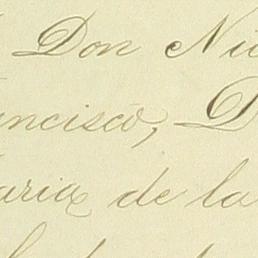 Don Nic
ancisco, D
aria de la